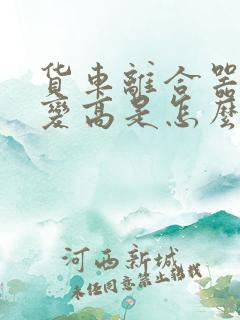 貨車離合器
變高是怎麼
河西新城
未经同意禁止转载